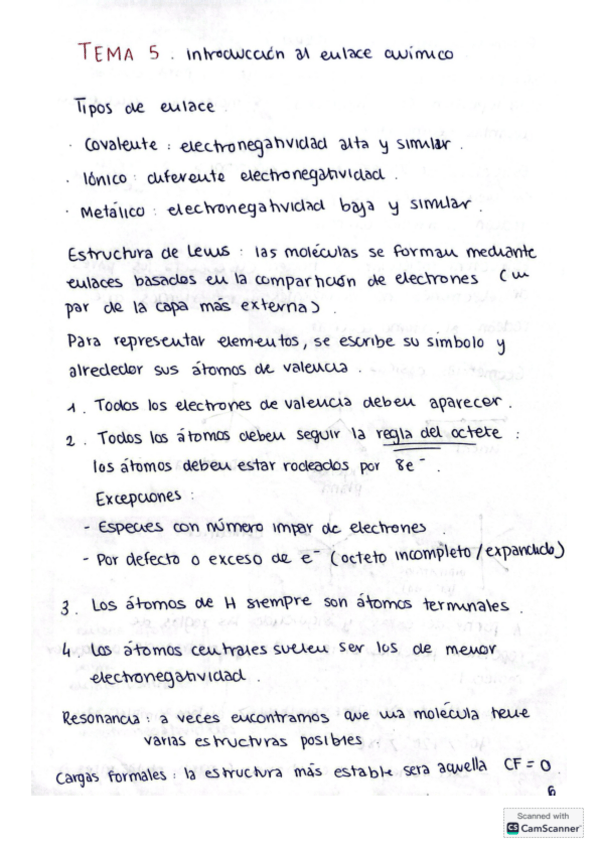 TEMA 5. Introducción al enlace químico
Tipos de enlace.
· Covalente: electronegatividad alta y similar.
· Iónico: diferente electronegatividad.
· Metálico: electronegatividad baja y similar.
Estructura de Lewis: las moléculas se forman mediante
enlaces basados en la compartición de electrones (un
par de la capa más externa).
Para representar elementos, se escribe su simbolo y
alrededor sus átomos de valencia.
1. Todos los electrones de valencia deben aparecer.
2. Todos los átomos deben seguir la regla del octete:
los átomos deben estar rodeados por 8e⁻.
Excepciones:
- Especies con número impar de electrones
- Por defecto o exceso de e⁻ (octeto incompleto/expandido)
3. Los átomos de H siempre son átomos terminales.
4. Los átomos centrales suelen ser los de menor
electronegatividad.
Resonancia: a veces encontramos que una molécula tiene
varias estructuras posibles
Cargas formales: la estructura más estable sera aquella CF = 0
6
Scanned with
CS CamScanner